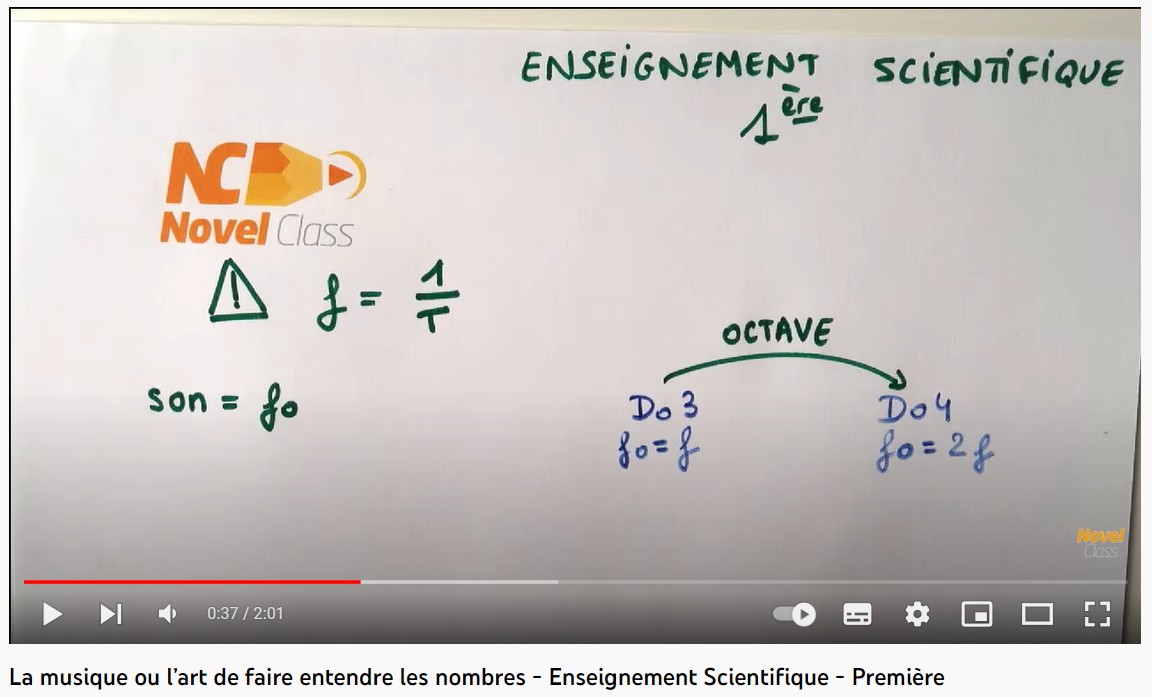 ENSEIGNEMENT SCIENTIFIQUE
1ère
NC
Novel Class
! f = 1/T
OCTAVE
son = fo
Do 3
Do 4
fo = f
fo = 2f
Novel
Class
0:37 / 2:01
La musique ou l'art de faire entendre les nombres - Enseignement Scientifique - Première